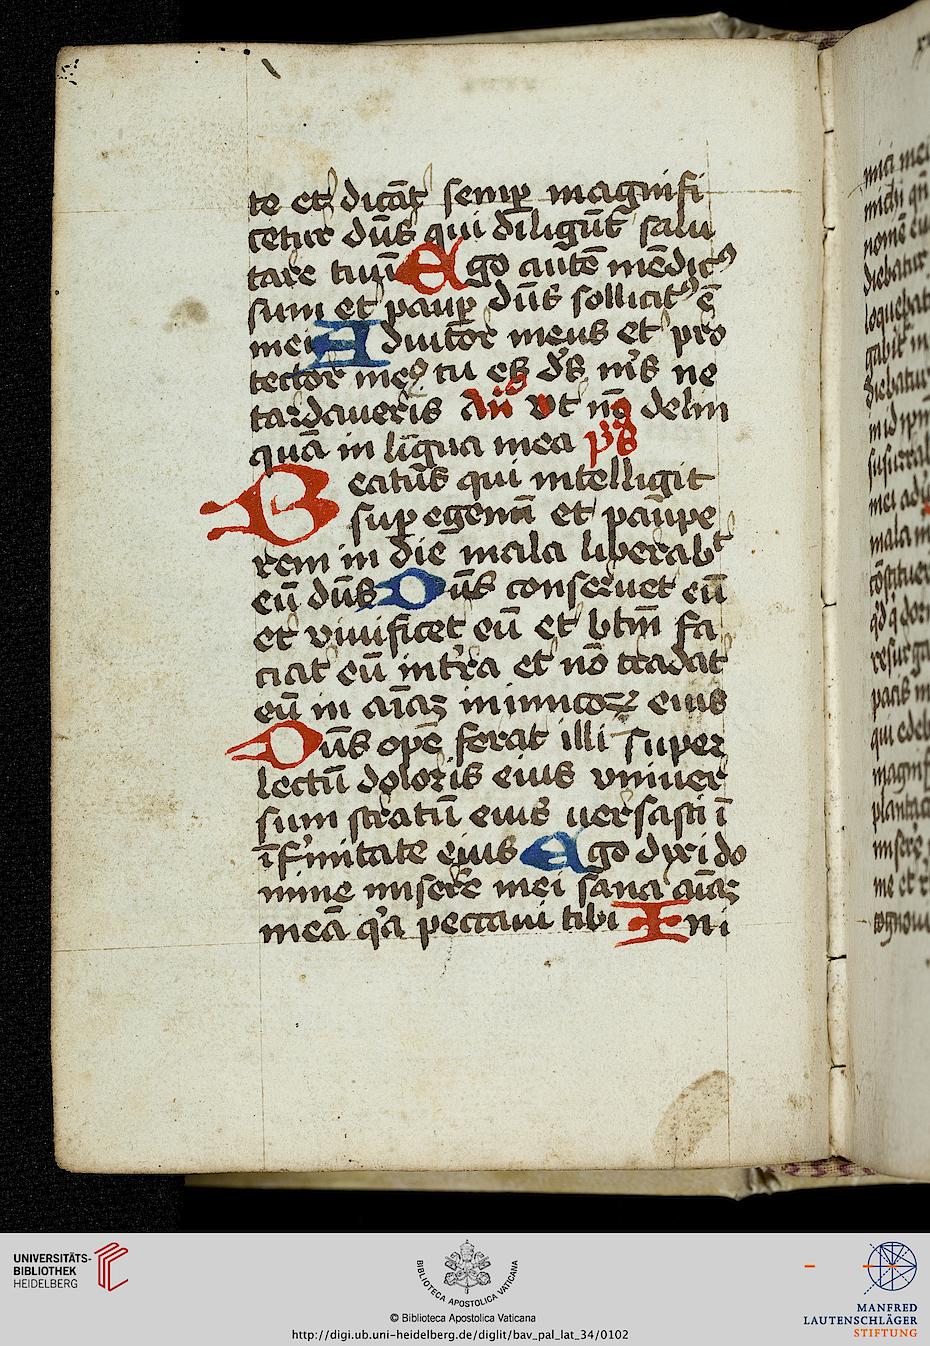 te et dicāt semp magnifi
cetur dūs qui diligūt salu
tare tuū Ego autē mēdicꝰ
sum et paup dūs sollicitꝰ ē
mei Adiutor meus et pro
tector meꝰ tu es ds ms ne
tardaueris Añ vt nō delin
quā in līgua mea ps
Beatus qui intelligit
sup egenū et paupe
rem in die mala liberabt
eū dūs Dūs conseruet eū
et viuificet eū et btm̄ fa
ciat eū in tra et nō tradat
eū in aīaꝫ inimicoꝝ eius
Dūs opē ferat illi super
lectū doloris eius vniuer
sum stratū eius uersasti ī
īfirmitate eius Ego dixi do
mine miserē mei sana aīaꝫ
meā qa peccaui tibi Ini
UNIVERSITÄTS-
BIBLIOTHEK
HEIDELBERG
BIBLIOTECA APOSTOLICA VATICANA
© Biblioteca Apostolica Vaticana
http://digi.ub.uni-heidelberg.de/diglit/bav_pal_lat_34/0102
MANFRED
LAUTENSCHLÄGER
STIFTUNG